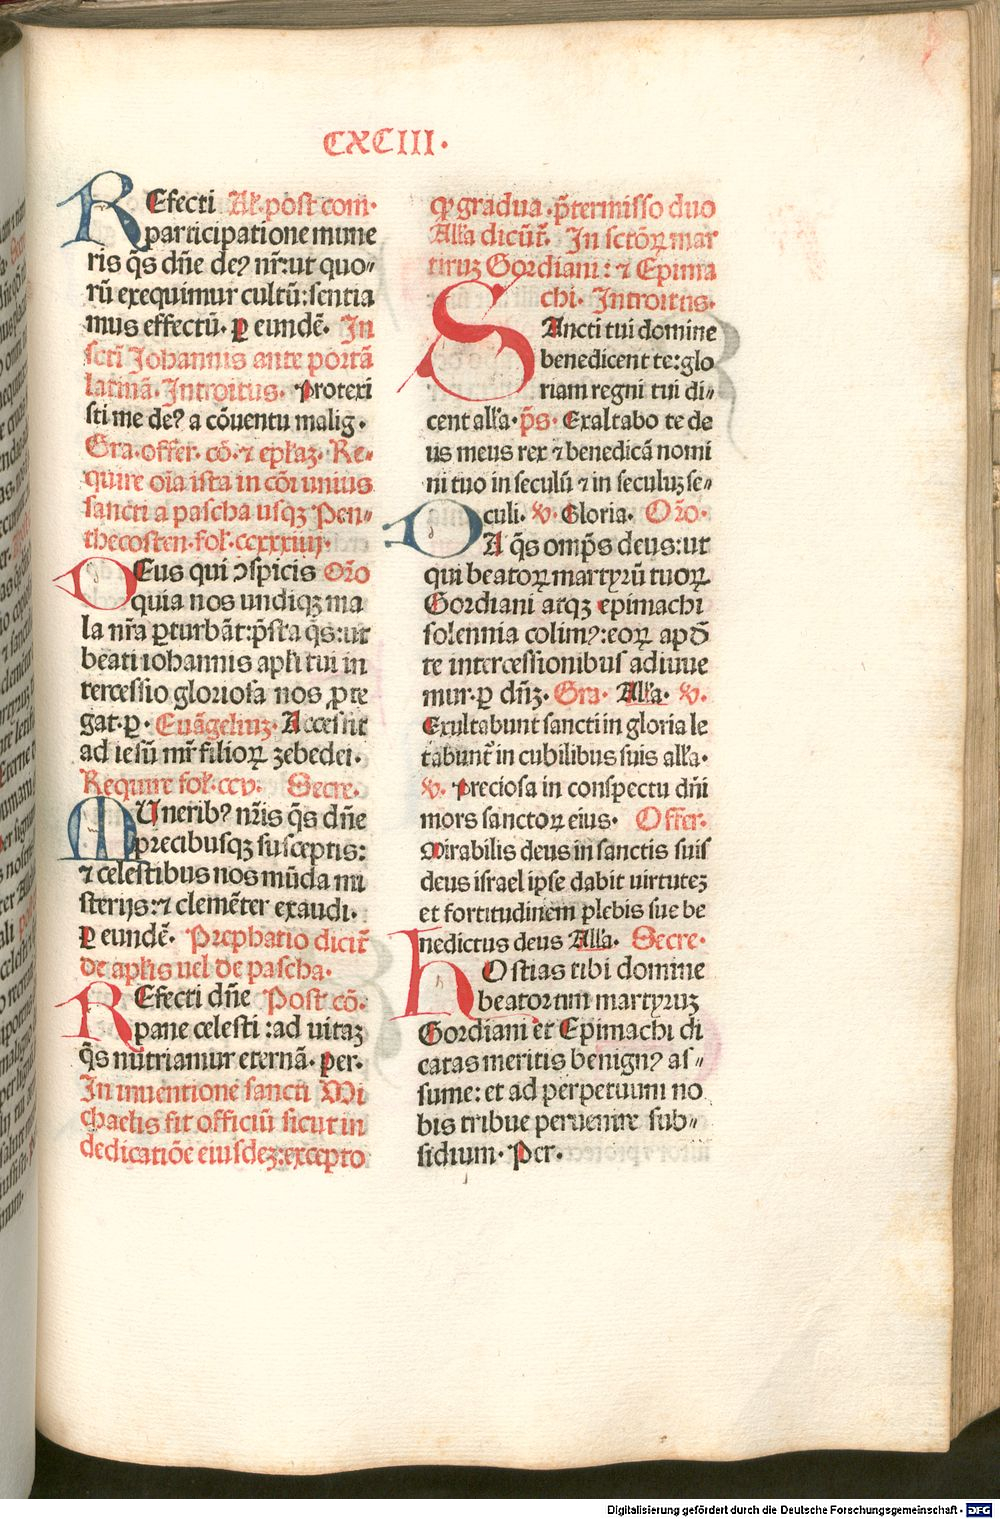 CXCIII·
REfecti Al'. post com·
participatione mune
ris q̄s dn̄e deꝰ nr̄: ut quo〃
rū exequimur cultū: sentia
mus effectū· ꝑ eundē· In
scti Johannis ante portā
latinā· Introitus· Protexi
sti me deꝰ a cōuentu malig·
Gra· offer· cō· ⁊ ep̄laꝫ· Re〃
quire oīa ista in cōi unius
sancti a pascha usqꝫ Pen〃
thecosten· fol· ccxxxiiij·
DEus qui ↄspicis Or̄o
quia nos undiqꝫ ma
la nr̄a ꝑturbāt: p̄sta q̄s: ut
beati iohannis apl̄i tui in
tercessio gloriosa nos ꝓte
gat· ꝑ· Euāgeliuꝫ· Accessit
ad iesū mr̄ filioꝝ zebedei·
Require fol· ccv· Secre·
MUneribꝰ nr̄is q̄s dn̄e
precibusqꝫ susceptis:
⁊ celestibus nos mūda mi
sterijs: ⁊ clemēter exaudi·
ꝑ eundē· Prephatio dicit̄
de apl̄is uel de pascha·
REfecti dn̄e Post cō·
pane celesti: ad uitaꝫ
q̄s nutriamur eternā· per·
In inuentione sancti Mi
chaelis fit officiū sicut in
dedicatiōe eiusdeꝫ: excepto
ꝙ gradua· p̄termisso duo
All'a dicūt̄· In sctōꝝ mar
tiruꝫ Gordiani: ⁊ Epima
chi· Introitus·
SAncti tui domine
benedicent te: glo
riam regni tui di〃
cent all'a· p̄s· Exaltabo te de
us meus rex ⁊ benedicā nomi
ni tuo in seculū ⁊ in seculuꝫ se〃
culi· ℣· Gloria· Or̄o·
DA q̄s omp̄s deus: ut
qui beatoꝝ martyrū tuoꝝ
Gordiani atqꝫ epimachi
solennia colimꝰ: eoꝝ apd̄
te intercessionibus adiuue
mur· ꝑ dn̄ꝫ· Gra· All'a· ℣·
Exultabunt sancti in gloria le
tabunt̄ in cubilibus suis all'a·
℣· Preciosa in conspectu dn̄i
mors sanctoꝝ eius· Offer·
Mirabilis deus in sanctis suis
deus israel ipse dabit uirtuteꝫ
et fortitudinem plebis sue be
nedictus deus All'a· Secre·
HOstias tibi domine
beatorum martyruꝫ
Gordiani et Epimachi di
catas meritis benignꝰ as〃
sume: et ad perpetuum no
bis tribue peruenire sub〃
sidium· Per·
Digitalisierung gefördert durch die Deutsche Forschungsgemeinschaft - DFG